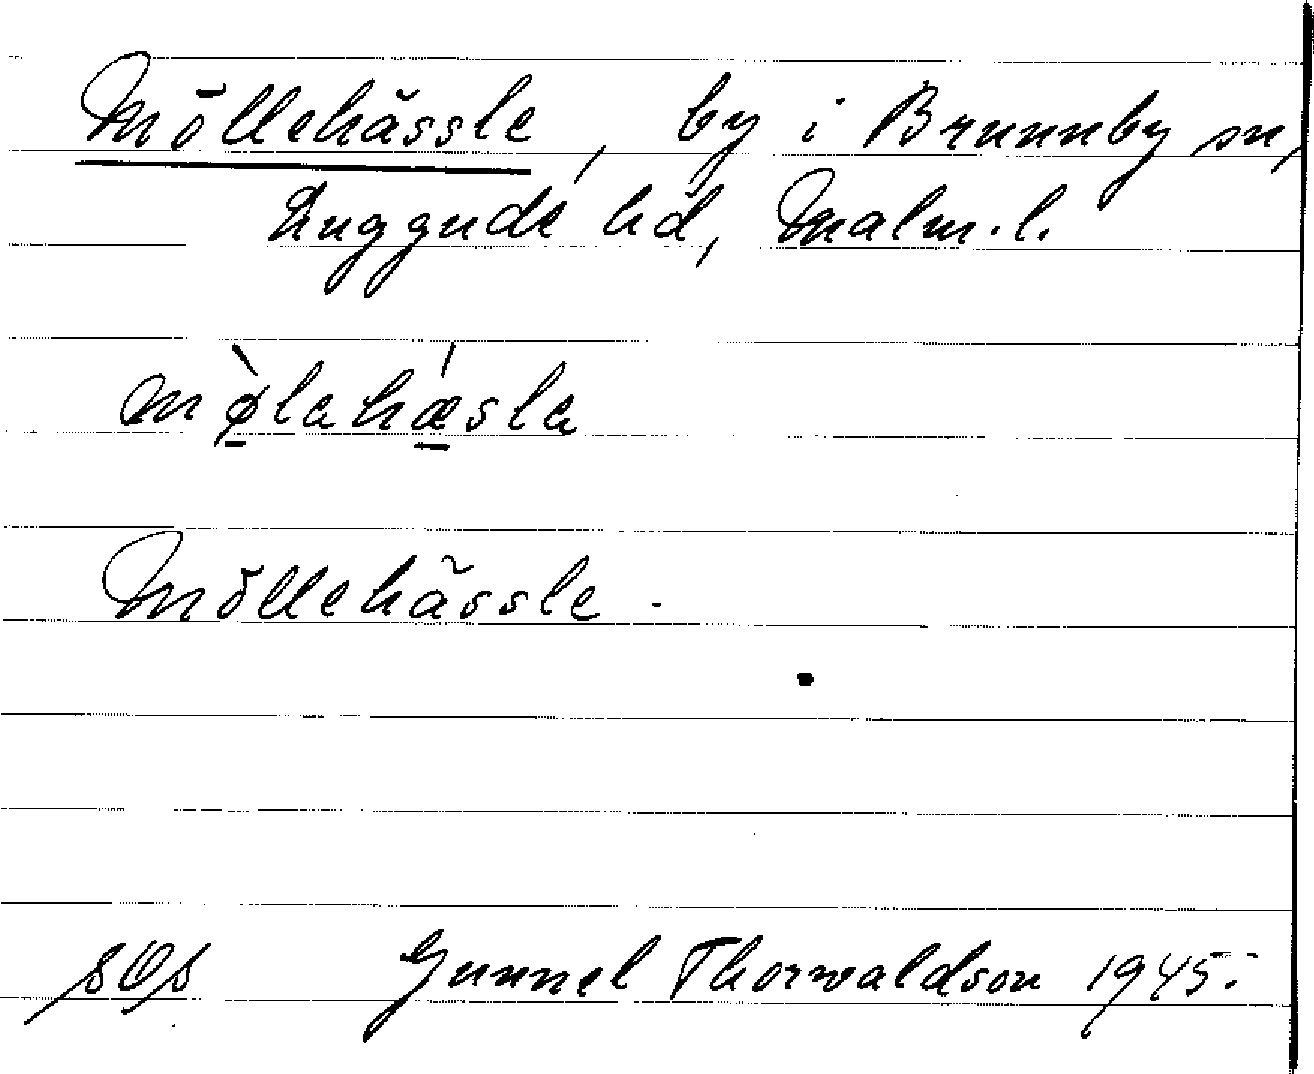 Möllehässle, by i Brunnby sn,
Luggude hd, Malm. l.
mø̀lahǽsla
Möllehässle.
SOS Gunnel Thorwaldson 1945.